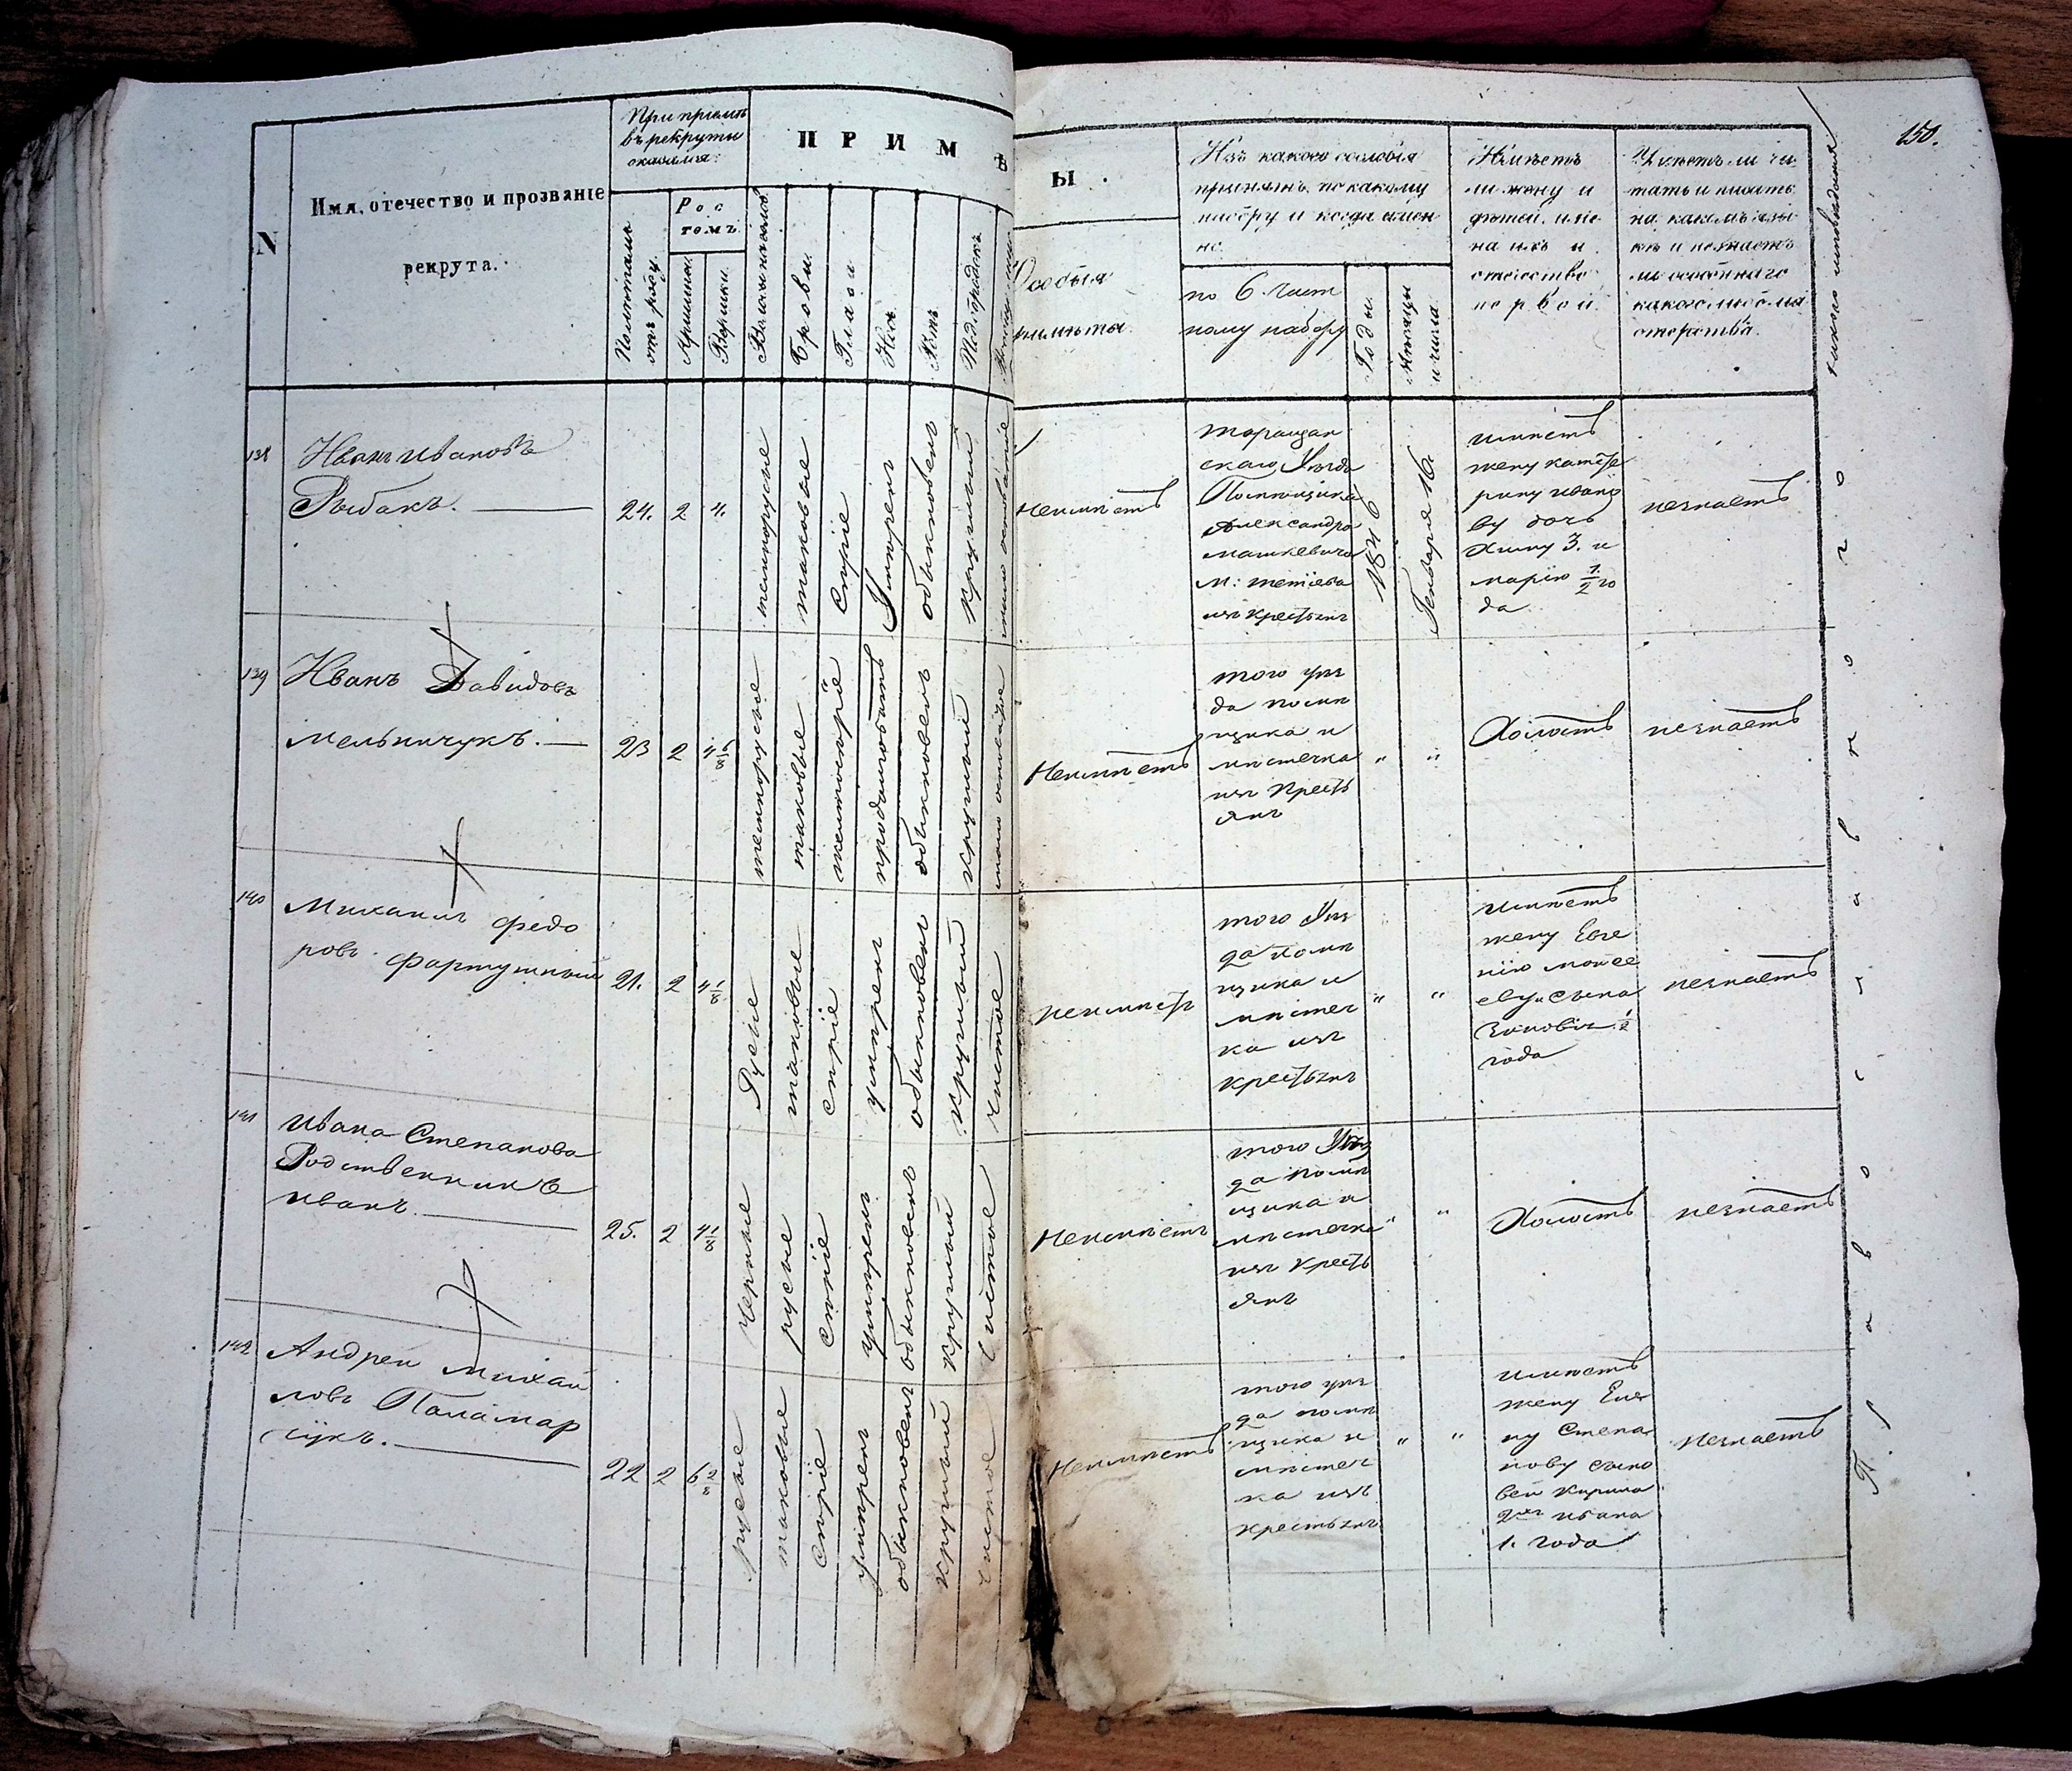 150.
N
Имя, отечество и прозваніе
рекрута.
При приемѣ
въ рекруты
оказался:
Полѣтамъ
отъ роду.
Рос
томъ.
Аршины.
Вершки.
ПРИМѢ
Брови.
Глаза
Носъ
Ротъ
Подбородокъ
Ы.
Особыя
примѣты.
Изъ какого сословія
принятъ по какому
набору и когда имен
но.
по 6. част
ному набору
Годы.
Мѣсяцы
и числа.
Имѣетъ
ли жену и
дѣтей, име
на ихъ и
отечество
первой.
Умѣетъ ли чи
тать и писать
на какомъ язы
кѣ и незнаетъ
ли особеннаго
какого либо ма
стерства.
какого исповеданія
138
Иванъ Ивановъ
Рыбакъ.
24.
2
4.
темнорусые
таковые
Сѣрые
Умѣренъ
обыкновенъ
круглый
Неимѣетъ
таращан
скаго Уѣзда
Помѣщика
Александра
Машкевича
М: тетіева
изъ крестьянъ
1846
Генваря 16.
имѣетъ
жену кате
рину ивано
ву дочь
Химу 3. и
марію 1/2 го
да
незнаетъ
139
Иванъ Давидовъ
Мельничукъ.
23
2
4 5/8
темнорусые
таковые
желтосѣрые
продолговатъ
обыкновенъ
круглый
Неимѣетъ
того уѣз
да помѣ
щика и
мѣстечка
изъ Кресть
янъ
"
"
Холостъ
незнаетъ
140
Михаилъ Федо
ровъ Фартушный
21.
2
4 1/8
Русые
таковые
сѣрые
умѣренъ
обыкновенъ
круглый
чистое
неимѣетъ
того Уѣз
да помѣ
щика и
мѣстеч
ка изъ
крестьянъ
"
"
имѣетъ
жену Евге
нію моисе
еву и сына
Зиновія 1/2
года
незнаетъ
141
Ивана Степанова
Родственникъ
иванъ.
25.
2
4 1/8
Черные
русые
сѣрые
умѣренъ
обыкновенъ
круглый
Чистое
Неимѣетъ
того Уѣз
да помѣ
щика и
мѣстечка
изъ Кресть
янъ
"
"
Холостъ
незнаетъ
142
Андрей Михай
ловъ Паламар
чукъ.
22
2
6 2/8
русые
таковые
сѣрые
умѣренъ
обыкновенъ
круглый
чистое
Неимѣетъ
того уѣз
да помѣ
щика и
мѣстеч
ка изъ
крестьянъ
"
"
имѣетъ
жену Еле
ну Степа
нову сыно
вей Кирила
2хъ ивана
1. года
незнаетъ
Православнаго